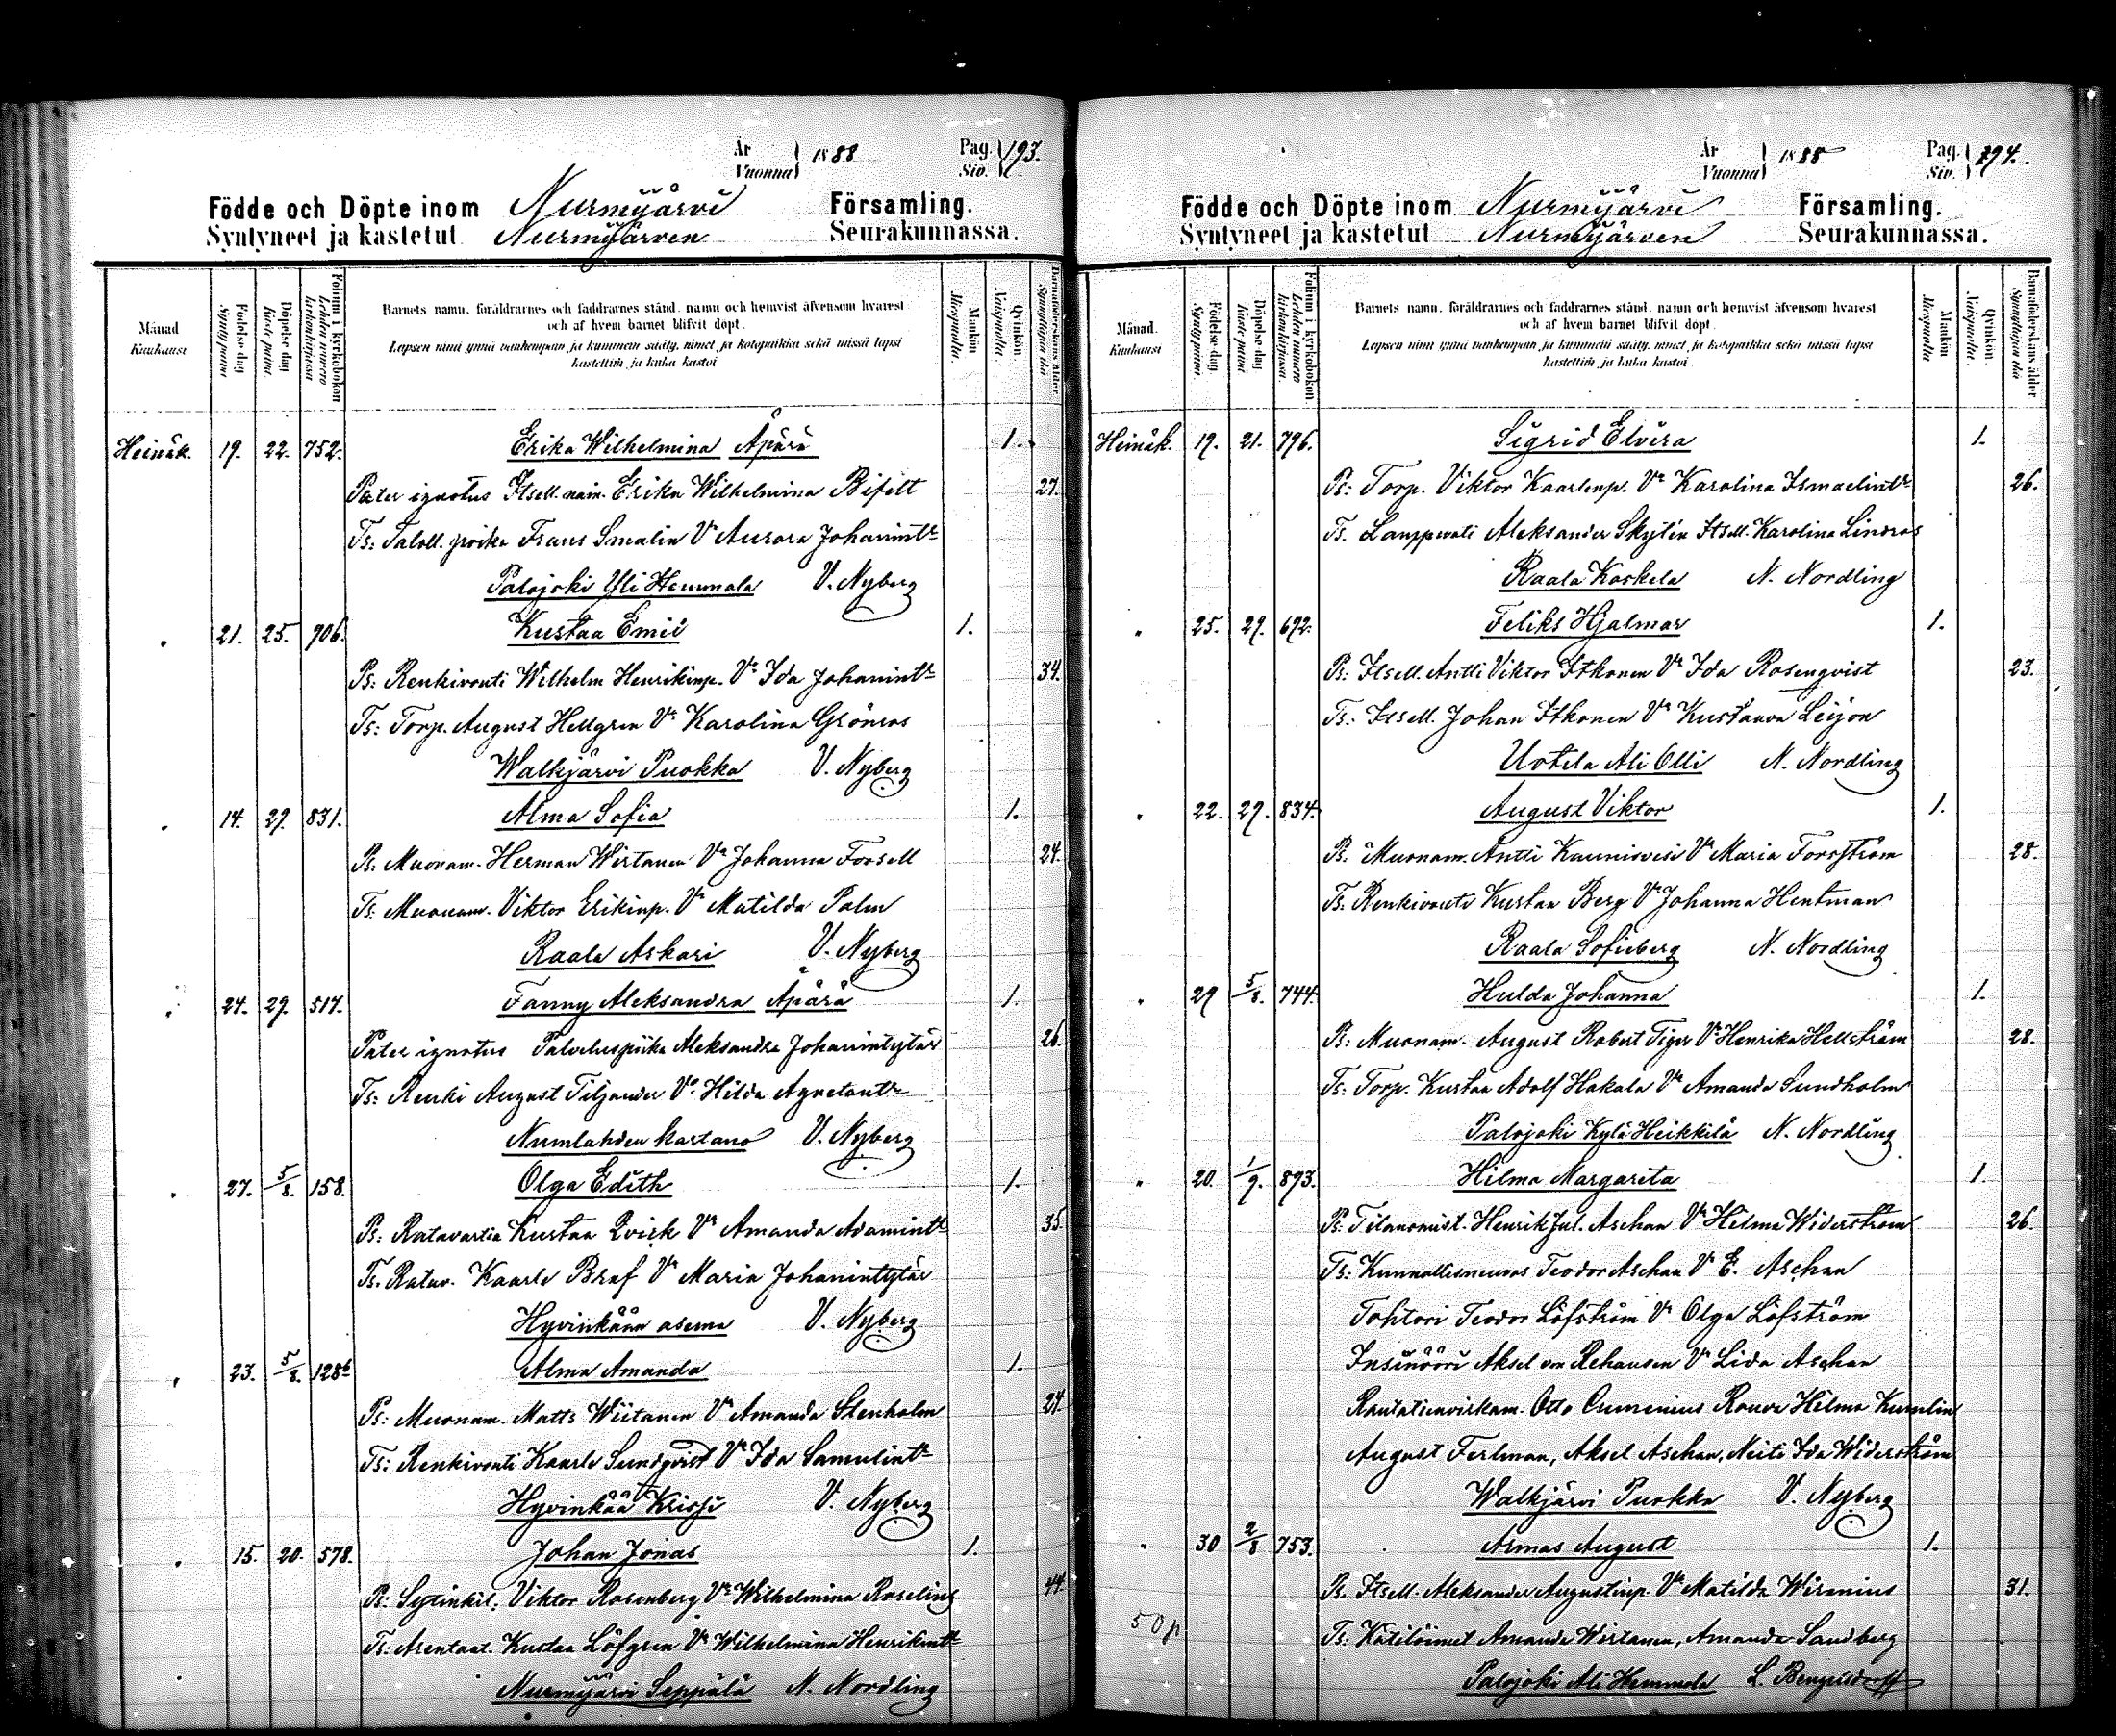 År Vuonna } 1888 Pag. Siv. } 193.
Födde och Döpte inom Nurmijärvi Församling.
Syntyneet ja kastetut Nurmijärven Seurakunnassa.
Månad Kuukausi
Födelse dag Synty päivä
Döpelse dag Kaste päivä
Folium i kyrkoboken Lehden numero kirkonkirjassa
Barnets namn, föräldrarnes och faddrarnes stånd, namn och hemvist äfvensom hvarest
och af hvem barnet blifvit döpt.
Lapsen nimi ynnä vanhempain ja kummein sääty, nimet ja kotopaikka sekä missä lapsi
kastettiin ja kuka kastoi
Mankön Miespuolta
Qvinkön Naispuolta
Barnaföderskans ålder Synnyttäjän ikä
Heinäk. 19. 22. 752. Erika Wilhelmina Äpärä 1.
Pater ignotus Itsell. nain. Erika Wilhelmina Bifelt 27.
Ts: Taloll. poika Frans Smalin Vo Aurora Johanintr
Palojoki Yli Hemmola V. Nyberg
" 21. 25. 706. Kustaa Emil 1.
Ps: Renkivouti Wilhelm Henrikinp. Vo Ida Johanintr 34.
Ts: Torp. August Hellgren Vo Karolina Grönros
Walkjärvi Puokka V. Nyberg
" 14. 29. 831. Alma Sofia 1.
Ps: Muonam. Herman Wirtanen Vo Johanna Forsell 24.
Ts: Muonam. Viktor Erikinp. Vo Matilda Palm
Raala Askari V. Nyberg
" 24. 29. 517. Fanny Aleksandra Äpärä 1.
Pater ignotus Palveluspiika Aleksandra Johanintytär 26.
Ts: Renki August Tiljander Vo Hilda Agnetantr
Numlahden kartano V. Nyberg
" 27. 5/8. 158. Olga Edith 1.
Ps: Ratavartia Kustaa Qvick Vo Amanda Adamintr 35.
Ts: Ratav. Kaarle Braf Vo Maria Johanintytär
Hyvinkään asema V. Nyberg
" 23. 5/8. 128b Alma Amanda 1.
Ps: Muonam. Matts Wiitanen Vo Amanda Stenholm 24.
Ts: Renkivouti Kaarle Sundqvist Vo Ida Samulintr
Hyvinkää Krissi V. Nyberg
" 15. 20. 578. Johan Jonas 1.
Ps: Sytinkil. Viktor Rosenberg Vo Wilhelmina Roselius 44.
Ts: Arentaat. Kustaa Löfgren Vo Wilhelmina Henrikintr
Nurmijärvi Seppälä N. Nordling
År Vuonna } 1888 Pag. Siv. } 194.
Födde och Döpte inom Nurmijärvi Församling.
Syntyneet ja kastetut Nurmijärven Seurakunnassa.
Månad. Kuukausi
Födelse dag Synty päivä
Döpelse dag Kaste päivä
Folium i kyrkoboken Lehden numero kirkonkirjassa.
Barnets namn, föräldrarnes och faddrarnes stånd, namn och hemvist äfvensom hvarest
och af hvem barnet blifvit döpt.
Lapsen nimi ynnä vanhempain ja kummein sääty, nimet ja kotopaikka sekä missä lapsi
kastettiin ja kuka kastoi
Mankön Miespuolta
Qvinkön. Naispuolta
Barnaföderskans ålder Synnyttäjän ikä
Heinäk. 19. 21. 796. Sigrid Elvira 1.
Ps: Torp. Viktor Kaarlenp. Vo Karolina Ismaelintr 26.
Ts. Lamppuoti Aleksander Skytén Itsell. Karolina Lindros
Raala Koskela N. Nordling
" 25. 29. 692. Feliks Hjalmar 1.
Ps: Itsell. Antti Viktor Itkonen Vo Ida Rosenqvist 23.
Ts: Itsell. Johan Itkonen Vo Kustaava Leijon
Uotila Ali Olli N. Nordling
" 22. 29. 834. August Viktor 1.
Ps. Muonam. Antti Kaunisvesi Vo Maria Forsström 28.
Ts. Renkivouti Kustaa Berg Vo Johanna Hentman
Raala Sofieberg N. Nordling
" 29 5/8. 744. Hulda Johanna 1.
Ps: Muonam. August Robert Tiger Vo Henrika Hellström 28.
Ts: Torp. Kustaa Adolf Hakala Vo Amanda Sundholm
Palojoki Kylä Heikkilä N. Nordling
" 20. 1/9. 893. Hilma Margareta 1.
Ps: Tilanomist. Henrik Jul. Aschan Vo Hilma Widerström 26.
Ts: Kunnallisneuvos Teodor Aschan Vo E. Aschan
Tohtori Teodor Löfström Vo Olga Löfström
Insinööri Aksel von Rehausen Vo Lida Aschan
Rautatienvirkam. Otto Rouva Hilma Kumlin
August Ferlman, Aksel Aschan, Neiti Ida Widerström
Walkjärvi Puokka V. Nyberg
" 30 2/8 753. Armas August 1.
Ps. Itsell. Aleksander Augustinp. Vo Matilda Wirenius 31.
50 p
Ts: Kätilöimet Amanda Wirtanen, Amanda Sandberg
Palojoki Ali Hemmola L. Bengelsdorff